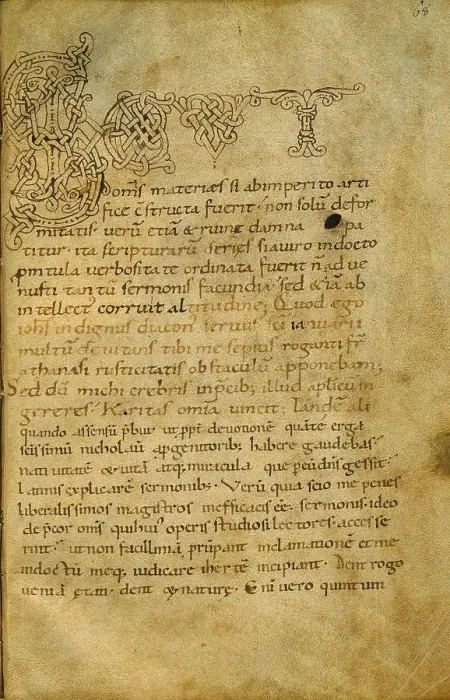 68
SICVT
domus materiaes si ab imperito arti
fice c̄structa fuerit · non solū defor
mitatis · verū etiā & ruine damna pa
titur · ita scripturarū series si a viro indocto
verbositate ordinata fuerit n̄ ad ve
nusti tantū sermonis facundiā · sed & iā ab
intellect corruit altitudine; Quod ego
iohs indignus diacon servus sc̄i ianuarii
multū vitans tibi me sepius roganti fr̄
athanasi rusticitatis obstaculū apponebam;
Sed dū michi crebris illud aplicū in
gereres · Karitas omīa vincit; landē ali
quando assensū p̄bui devotionē erga
nicholaū genitorib; habere gaudebas
nativitatē & vitā atq; miracula que
latinis explicarē sermonib; · Verū quia scio me penes
liberalissimos magistros inefficacis eē · sermonis · ideo
de p̄cor om̄s quihui operis studiosi lectores · accesse
rint · ut non facillimā inclamationē et me
indoctū meq; iudicare ihertē incipiant · Dent rogo
veniā ętati · dent & naturę · Eni vero quintum